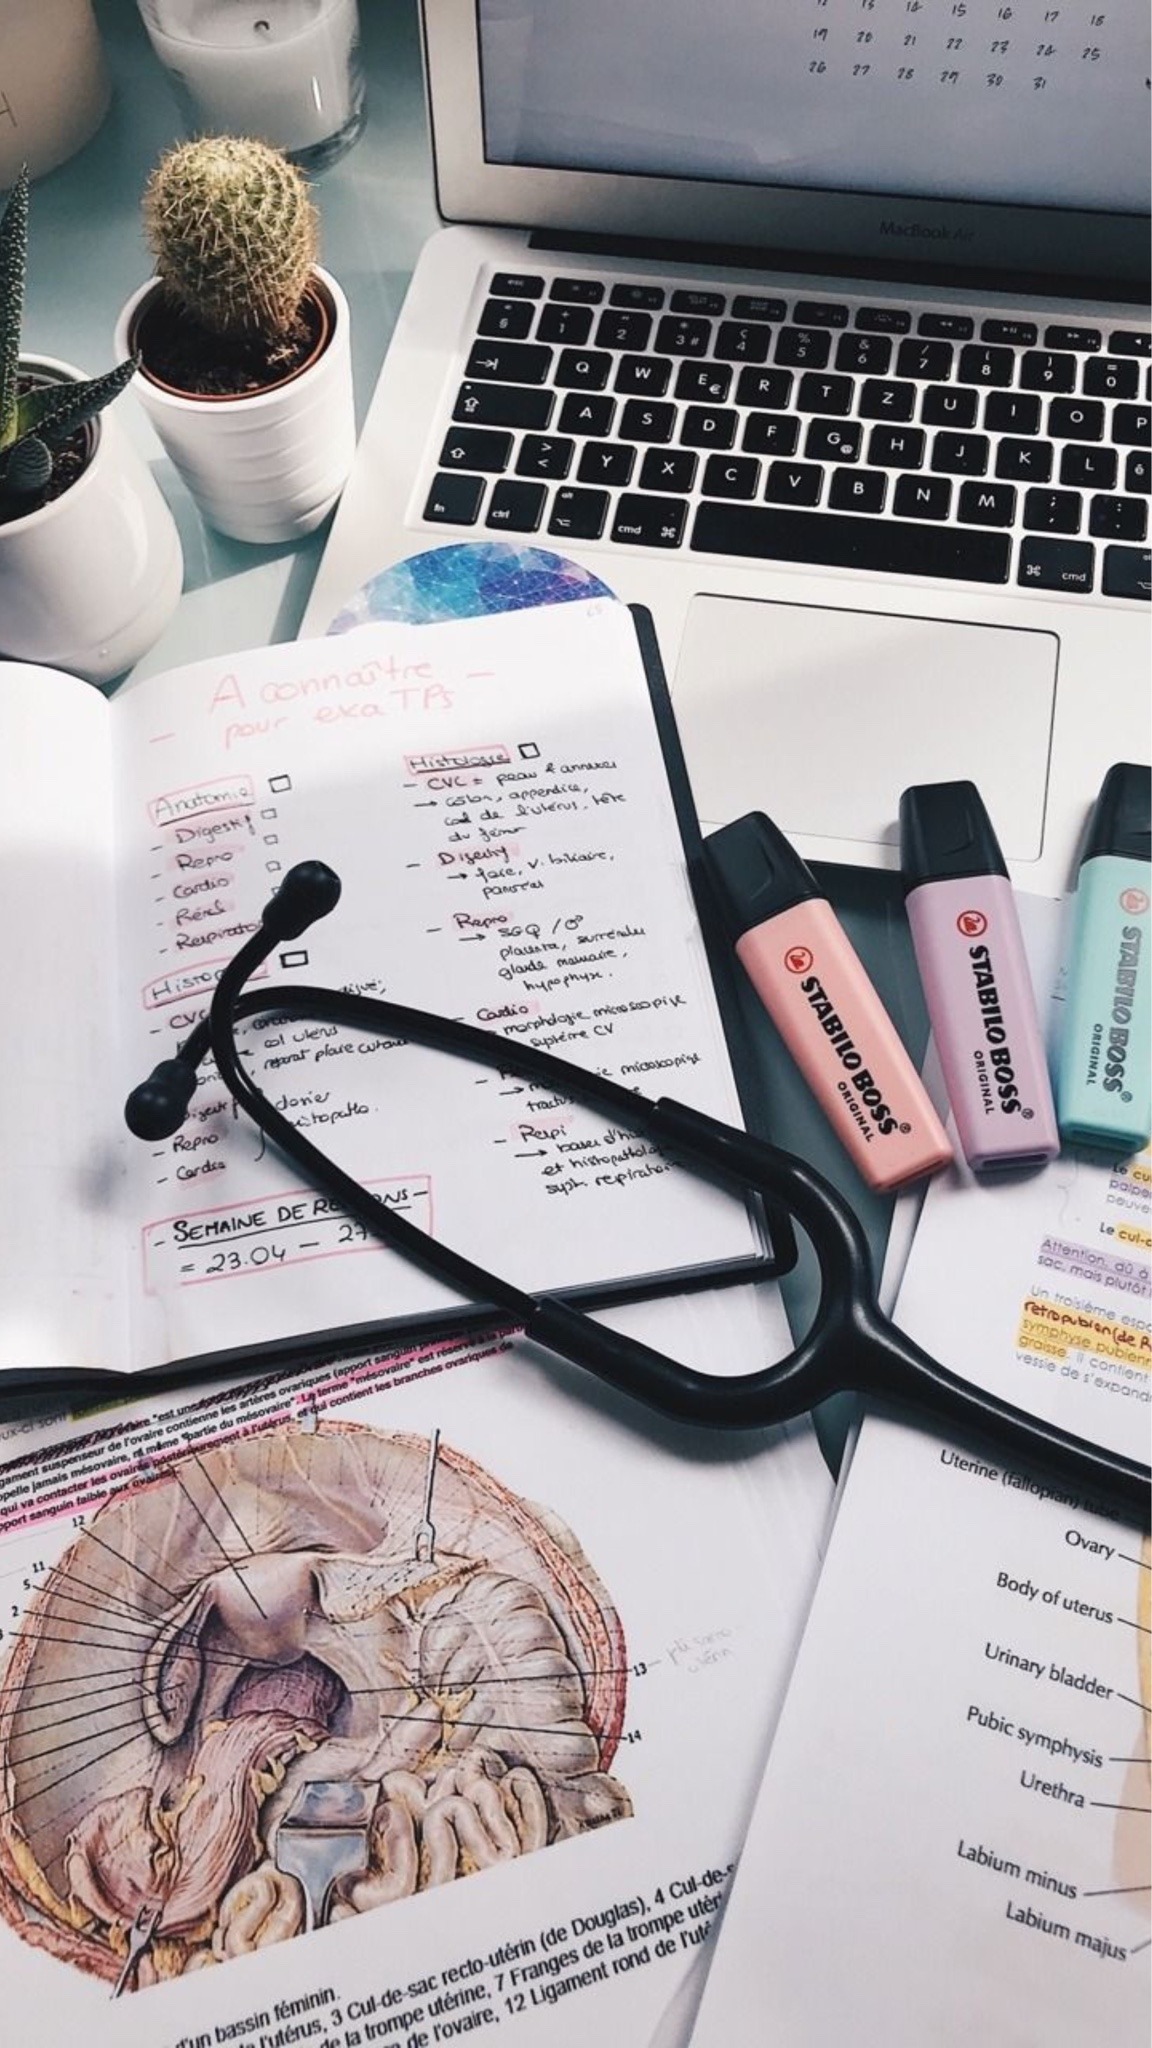 12 13 14 15 16 17 18
19 20 21 22 23 24 25
26 27 28 29 30 31
MacBook Air
esc
§ 1 2 3 # 4 5 6 7 8 9 0
Q W E € R T Z U I O P
A S D F G @ H J K L é
> < Y X C V B N M ; , : .
fn ctrl alt cmd ⌘ ⌘ cmd
A connaître
- pour exa TPs -
Anatomie
- Digestif
- Repro
- Cardio
- Rénal
- Respirato
Histop
- CVC
col utérus
Digestif
- Repro
- Cardio
dossier
histopatho.
- SEMAINE DE RE ONS -
= 23.04 - 27
Histologie
- CVC = peau & annexes
→ colon, appendice,
col de l'utérus, tête
du fémur
- Digestif
→ foie, v. biliaire,
pancréas
- Repro
→ SGQ / O
placenta, surrénales
glande mammaire,
hypophyse.
- Cardio
morphologie microscopique
système CV
microscopique
tractus
- Respi
→ bases d'his
et histopatholo
syst. respiratoire
STABILO BOSS®
ORIGINAL
STABILO BOSS®
ORIGINAL
STABILO BOSS®
ORIGINAL
Le cu
palpe
peuve
Le cul-d
Attention, dû à
sac, mais plutôt
Un troisième espa
retropubien (de R
symphyse pubienn
graisse. Il contient
vessie de s'expand
ux-ci sont
"est une
gament suspenseur de l'ovaire contienne les artères ovariques (apport sanguin
ppelle jamais mésovaire, ni même "partie du mésovaire". Le terme "mésovaire" est réservé à la part
qui va contacter les ovaires postérieurement à l'utérus, et qui contient les branches ovariques de
pport sanguin faible aux ovaires
12
11
5
2
13
14
d'un bassin féminin.
e l'utérus, 3 Cul-de-sac recto-utérin (de Douglas), 4 Cul-de-s
de la trompe utérine, 7 Franges de la trompe utér
e de l'ovaire, 12 Ligament rond de l'uté
Uterine (fallopian) tube
Ovary
Body of uterus
Urinary bladder
Pubic symphysis
Urethra
Labium minus
Labium majus